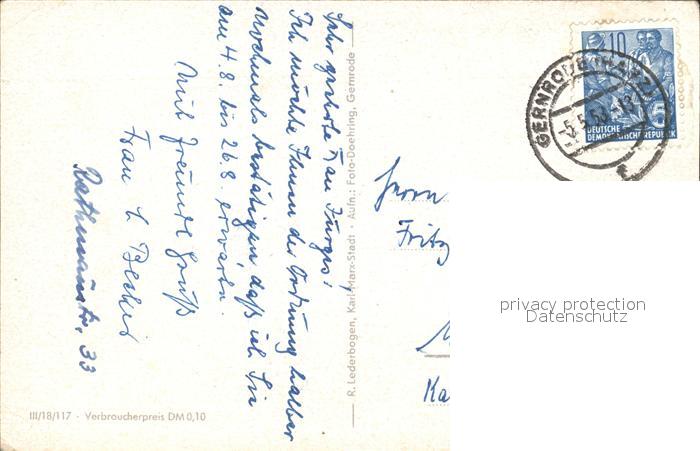 Sehr geehrte Frau Jürges!
Ich möchte Ihnen der Ordnung halber
nochmals bestätigen, daß ich Sie
am 4.8. bis 26.8. erwarte.
Mit freundl. Gruß
Frau L. Becker
Rathenaustr. 33
III/18/117 · Verbraucherpreis DM 0,10
R. Lederbogen, Karl-Marx-Stadt · Aufn.: Foto-Doehring, Gernrode
10
DEUTSCHE
DEMOKRATISCHE REPUBLIK
GERNRODE (HARZ)
Herrn
Fritz
Ka
privacy protection
Datenschutz